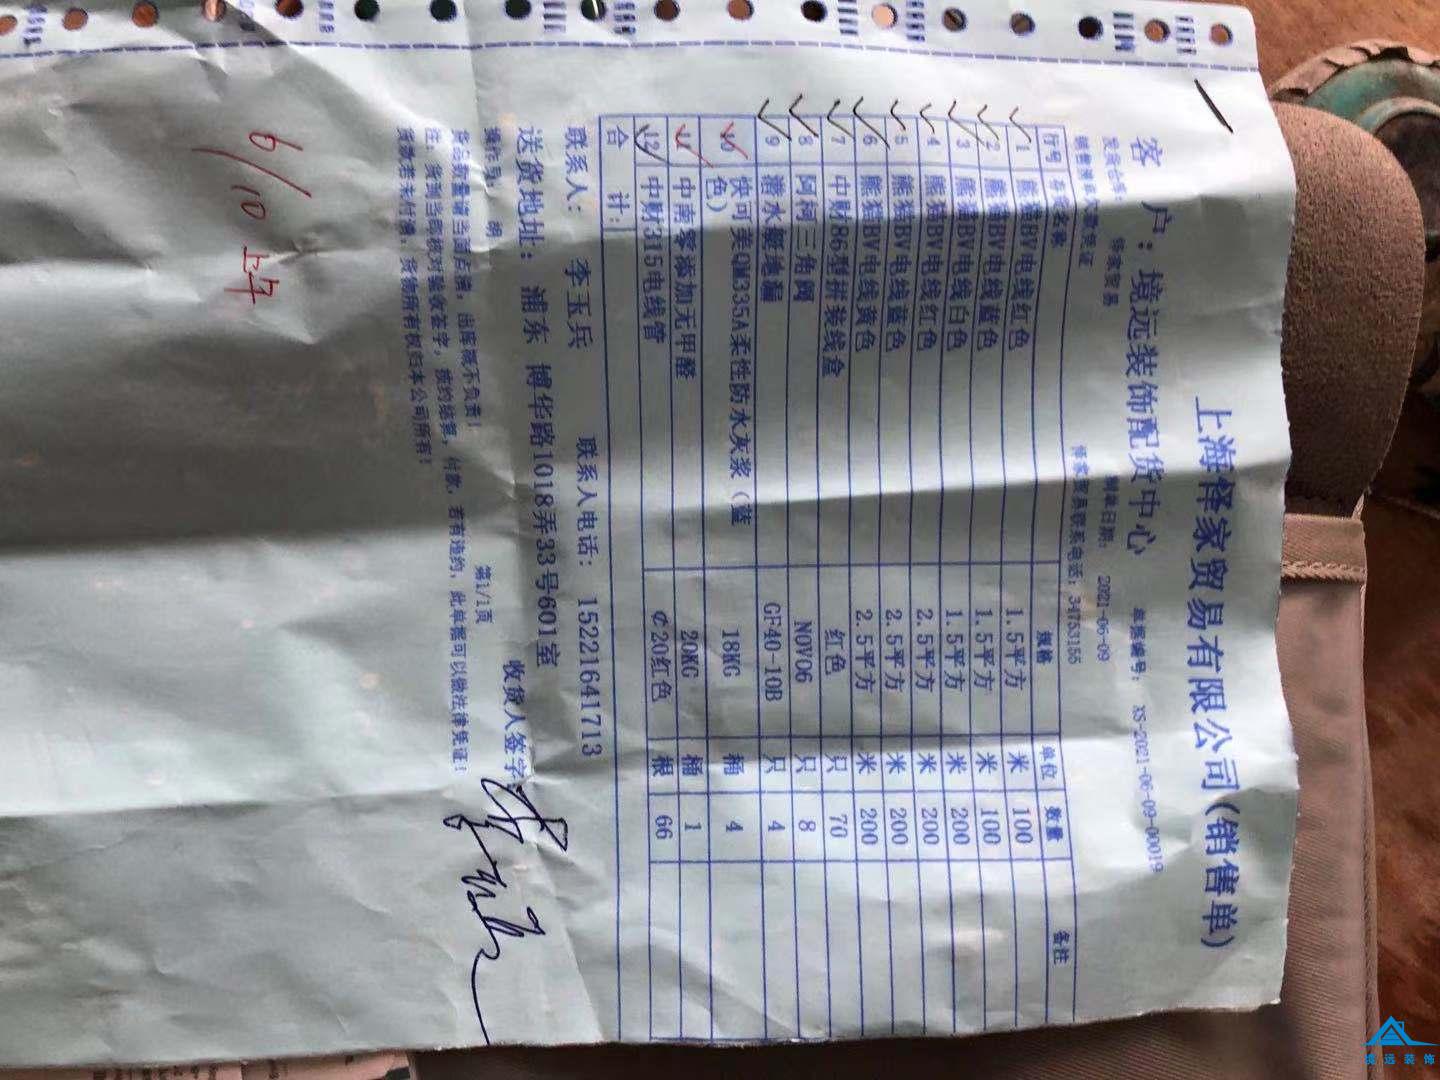 上海怿家贸易有限公司(销售单)
客户：境远装饰配货中心 单据编号： XS-2021-06-09-00019
发货仓库： 怿家贸易 制单日期： 2021-06-09
销售清单欠款凭证 怿家贸易联系电话：34753155
行号 存货名称 规格 单位 数量 备注
1 熊猫BV电线红色 1.5平方 米 100
2 熊猫BV电线蓝色 1.5平方 米 100
3 熊猫BV电线白色 1.5平方 米 200
4 熊猫BV电线红色 2.5平方 米 200
5 熊猫BV电线蓝色 2.5平方 米 200
6 熊猫BV电线黄色 2.5平方 米 200
7 中财86型拼装线盒 红色 只 70
8 阿柯三角阀 NOVO6 只 8
9 潜水艇地漏 GF40-10B 只 4
10 快可美QM335A柔性防水灰浆（蓝色） 18KG 桶 4
11 中南零添加无甲醛 20KG 桶 1
12 中财315电线管 ¢20红色 根 66
合 计：
联系人： 李玉兵 联系人电话： 15221641713
送货地址： 浦东 博华路1018弄33号601室
操作员： 明 第1/1页 收货人签字
货品数量请当面点清，出库概不负责！
注：货到当即核对验收签字，预约结算、付款，若有违约，此单据可以做法律凭证！
货款若未付清，货物所有权归本公司所有！
6/10 上午
境远装饰